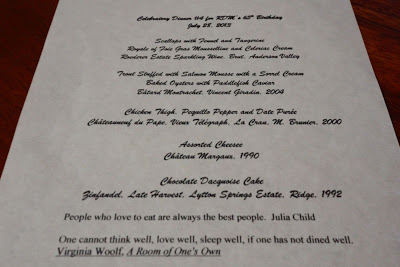 Celebratory Dinner 114 for RDM's 65th Birthday
July 28, 2013
Scallops with Fennel and Tangerine
Royale of Foie Gras Mousseline and Celeriac Cream
Roederer Estate Sparkling Wine, Brut, Anderson Valley
Trout Stuffed with Salmon Mousse with a Sorrel Cream
Baked Oysters with Paddlefish Caviar
Bâtard Montrachet, Vincent Girardin, 2004
Chicken Thigh, Pequillo Pepper and Date Purée
Châteauneuf du Pape, Vieux Télégraph, La Crau, M. Brunier, 2000
Assorted Cheeses
Château Margaux, 1990
Chocolate Dacquoise Cake
Zinfandel, Late Harvest, Lytton Springs Estate, Ridge, 1992
People who love to eat are always the best people. Julia Child
One cannot think well, love well, sleep well, if one has not dined well.
Virginia Woolf, A Room of One's Own